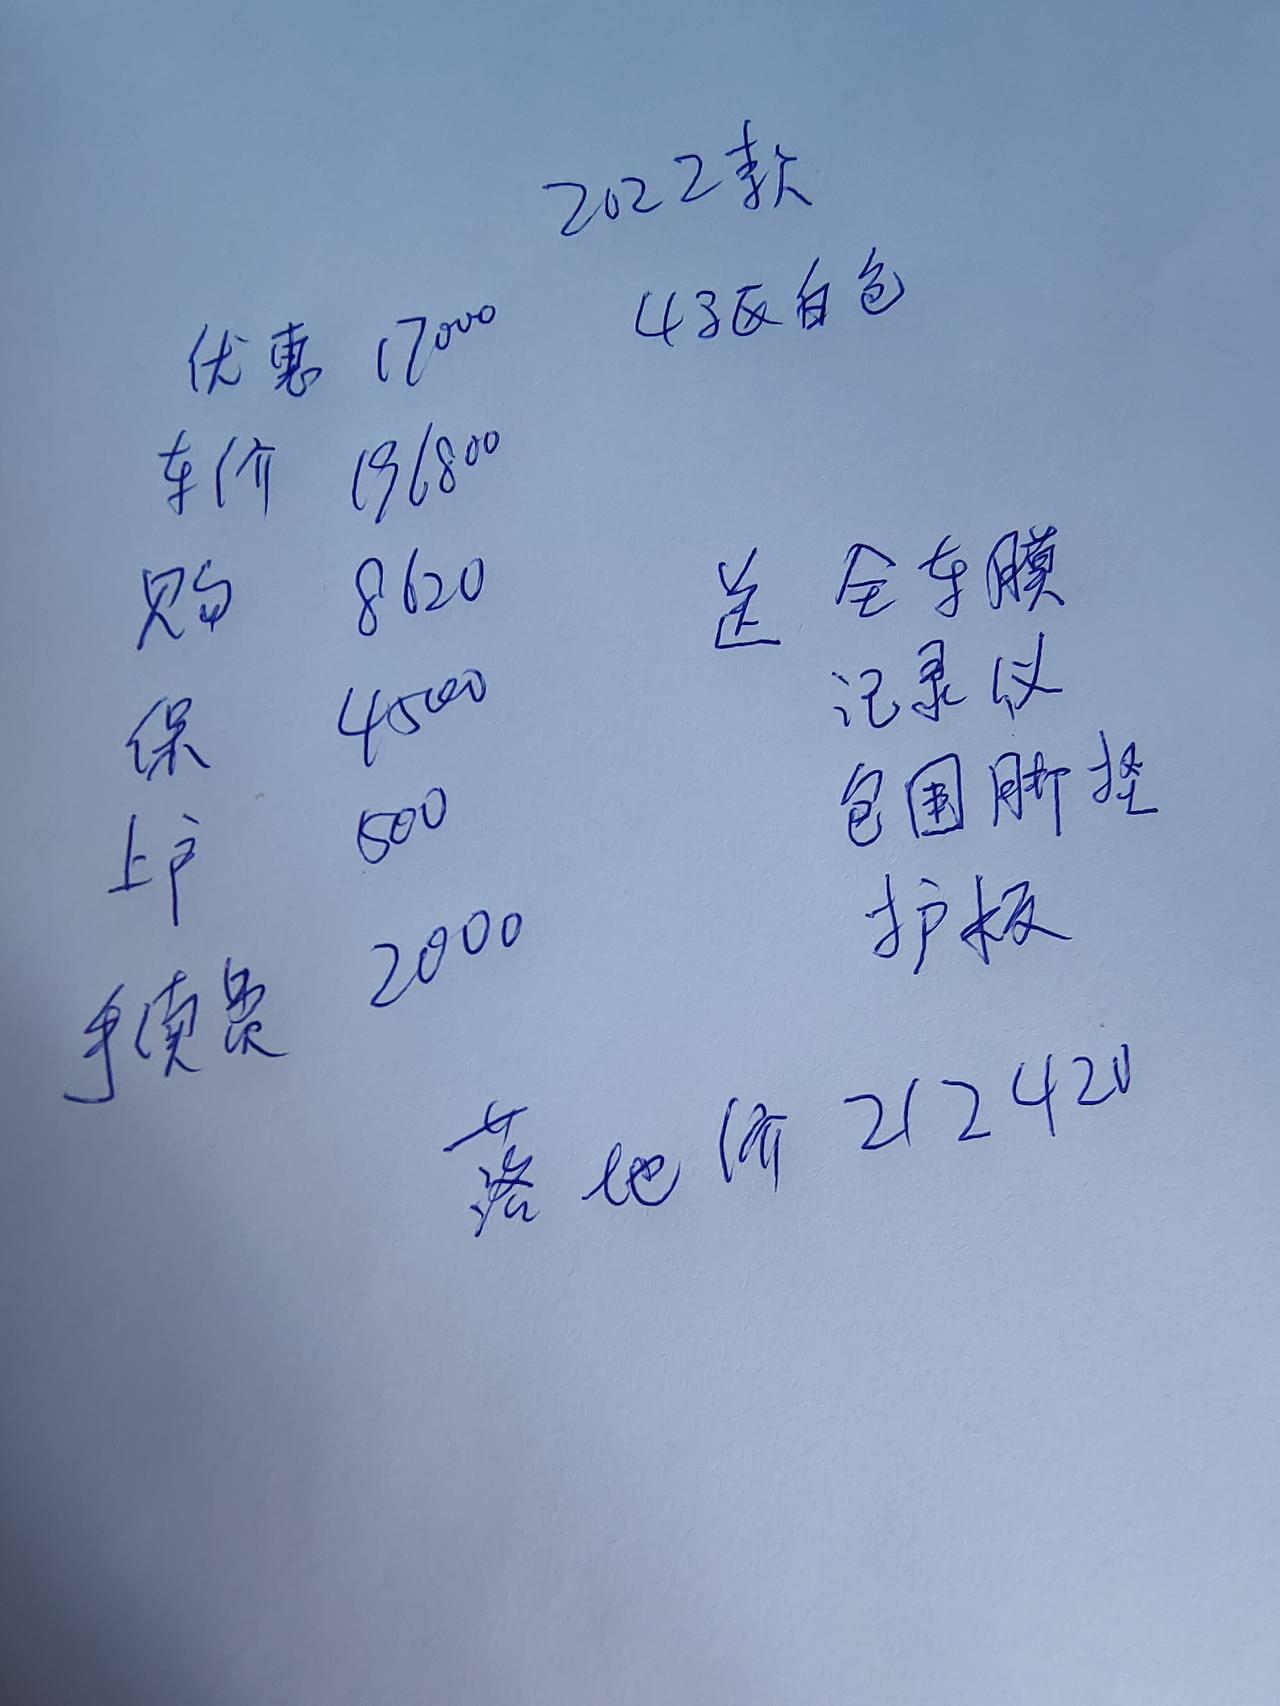 2022款
优惠 17000
43灰白色
车价 196800
购 8620
送 全车膜
保 4500
记录仪
上户 500
包围脚垫
手续费 2000
护板
落地价 212420